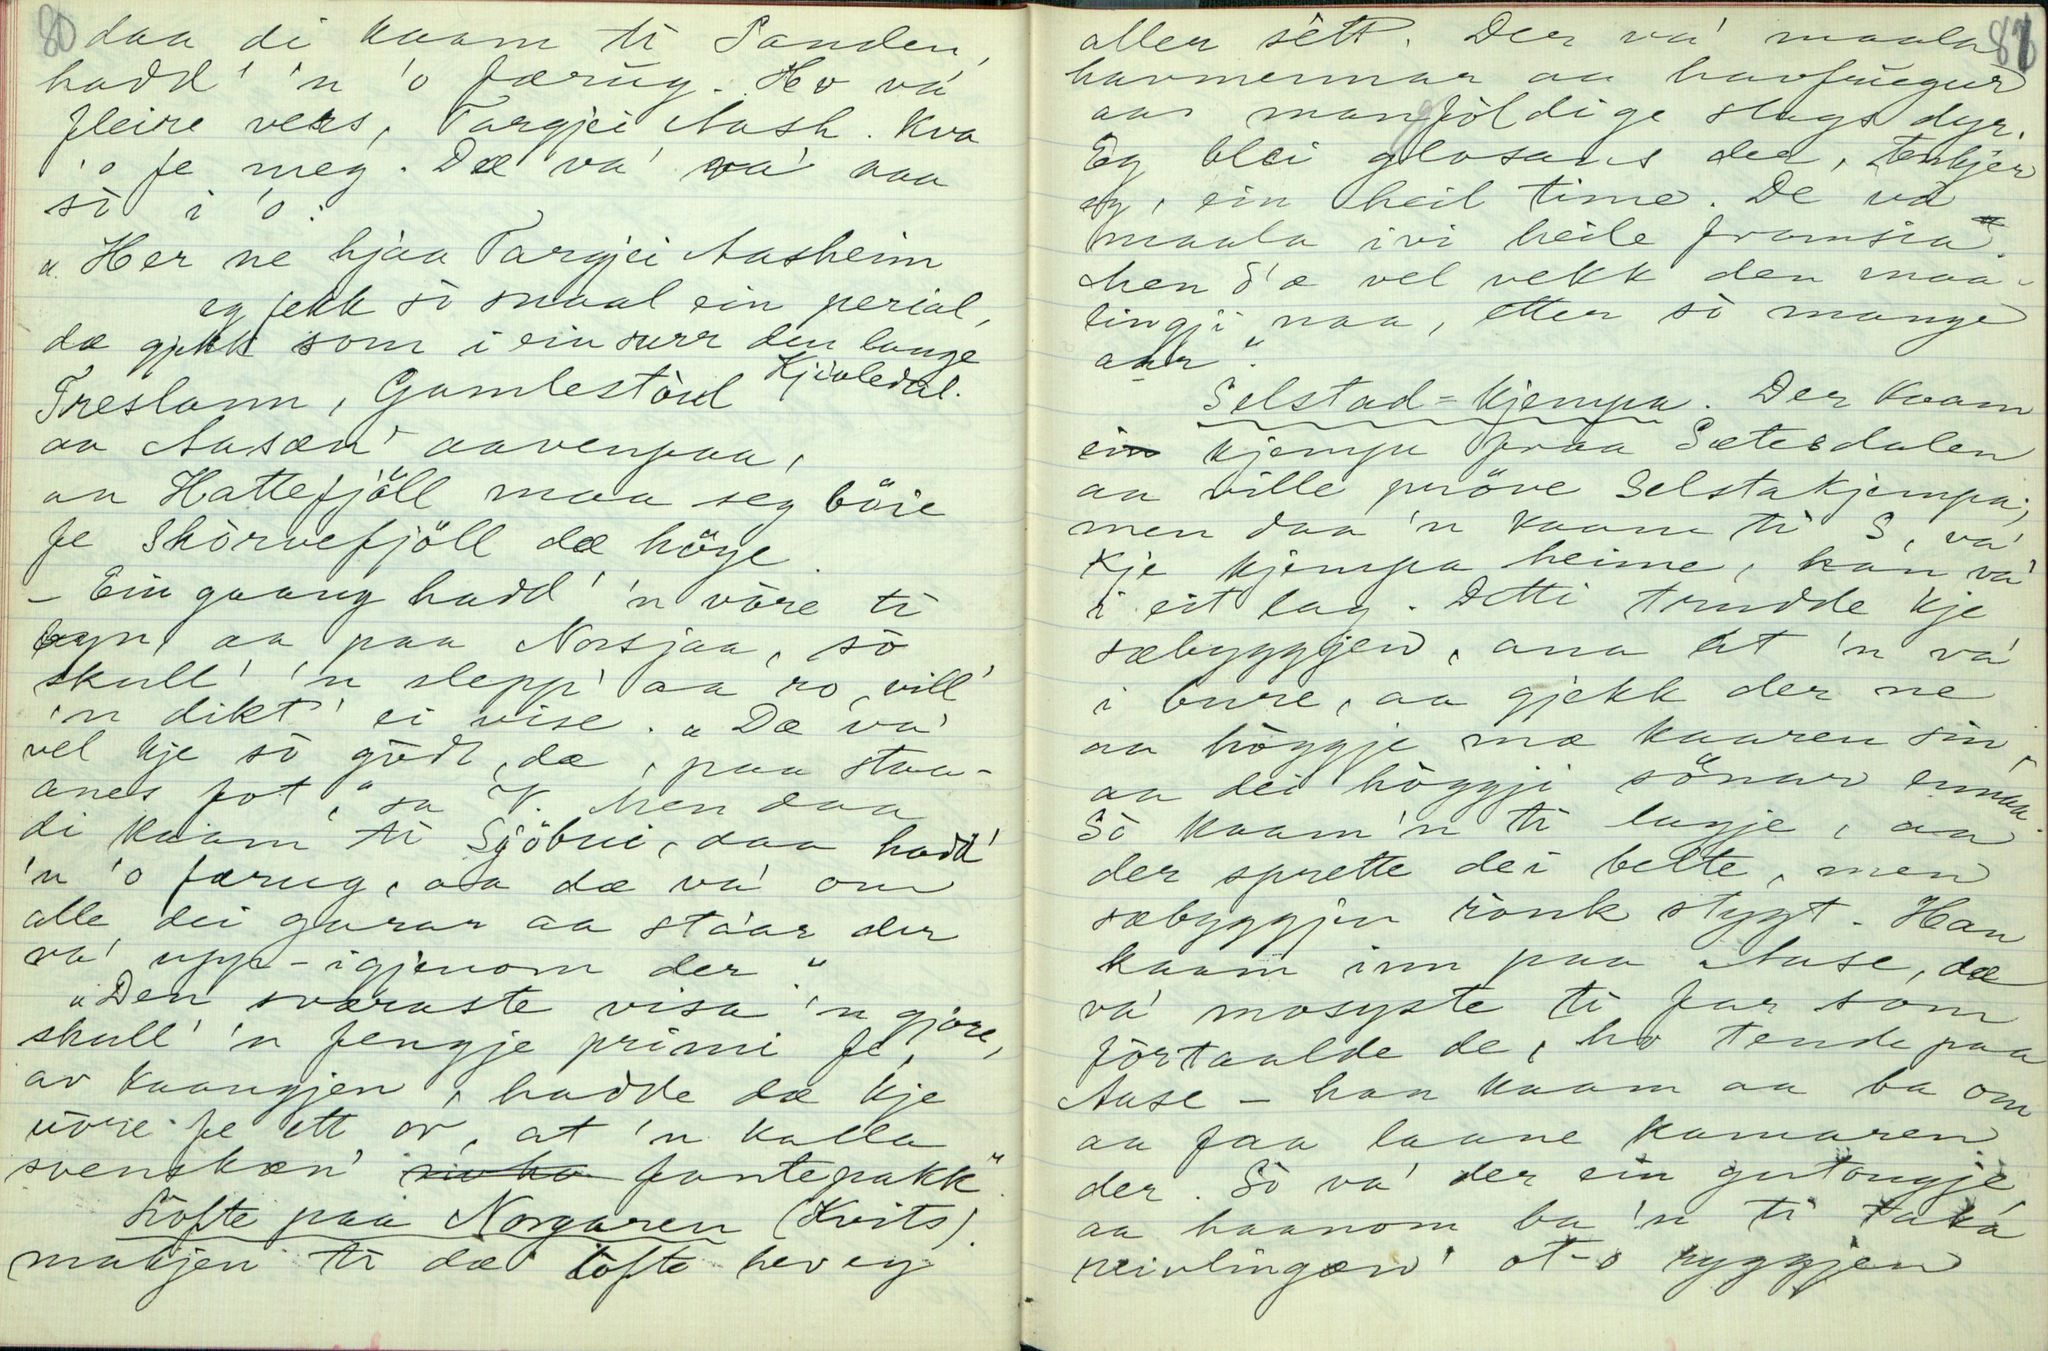 80
daa di kaam ti Sanden,
hadd' 'n 'o færug. Ho va'
fleire vers, Targjei Aash. kva
'o fe meg. Dæ va' va' aaa
sò i 'o:
"Her ne hjaa Targjei Aasheim
eg fekk sò snaal ein perial,
dæ gjekk som i ein surr den lange
Kjivledal.
Treslonn, Gamlestòul
aa Aasæn' aavenpaa,
aa Hattefjöll maa seg böie
fe Skòrvefjöll dæ höge.
– Ein gaang hadd' 'n vòre ti
byn, aa paa Norsjaa, sò
skull' 'n sleppi aa ro, vill'
'n dikt' ei vise. "Dæ va'
vel kje sò gòdt, dæ, paa staa-
anes fot", sa V. Men daa
di kaam ti Sjöbui, daa hadd'
'n 'o færug, aa dæ va' om
alle dei garar aa stáar der
va' upp-igjenom der"
"Den sværaste visa 'n gjore,
skull' 'n fengje primi fe,
av kaangjen, hadde dæ kje
vòre fe ett or, at 'n kalla
svenskæn' fantepakk".
Lòfte paa Norgaren (Kvits).
makjen ti dæ lòfte hev eg
81
aller sètt. Der va' maala
havmennar aa havfruegur
aa mangföldige slags dyr.
Eg blei glosans der, tenkjer
eg, ein heil time. De va
maala ivi heile framsia.
Men d'æ vel vekk den maa-
lingji naa, etter sò mange
aar".
Selstad-kjempa. Der kaam
ein kjempe fraa Sætesdalen
aa ville pröve Selstakjempa;
men daa 'n kaam ti S, va'
kje kjempa heime, han va'
i eit lag. Detti trudde kje
sæbyggjen, ana at 'n va'
i bure, aa gjekk der ne
aa höggje mæ kaaren sin,
aa dei höggji sönar ennaa.
Sò kaam 'n ti lagje, aa
der sprette dei belte, men
sæbyggjen rònk stygt. Han
kaam inn paa Aase, dæ
va' mosyste ti far som
fòrtaalde de, ho tende paa
Aase – han kaam aa ba om
aa faa laane kamaren
der. Sò va' der ein gutongje
aa haanom ba 'n ti taka
reivlingæn' ot-o ryggjen